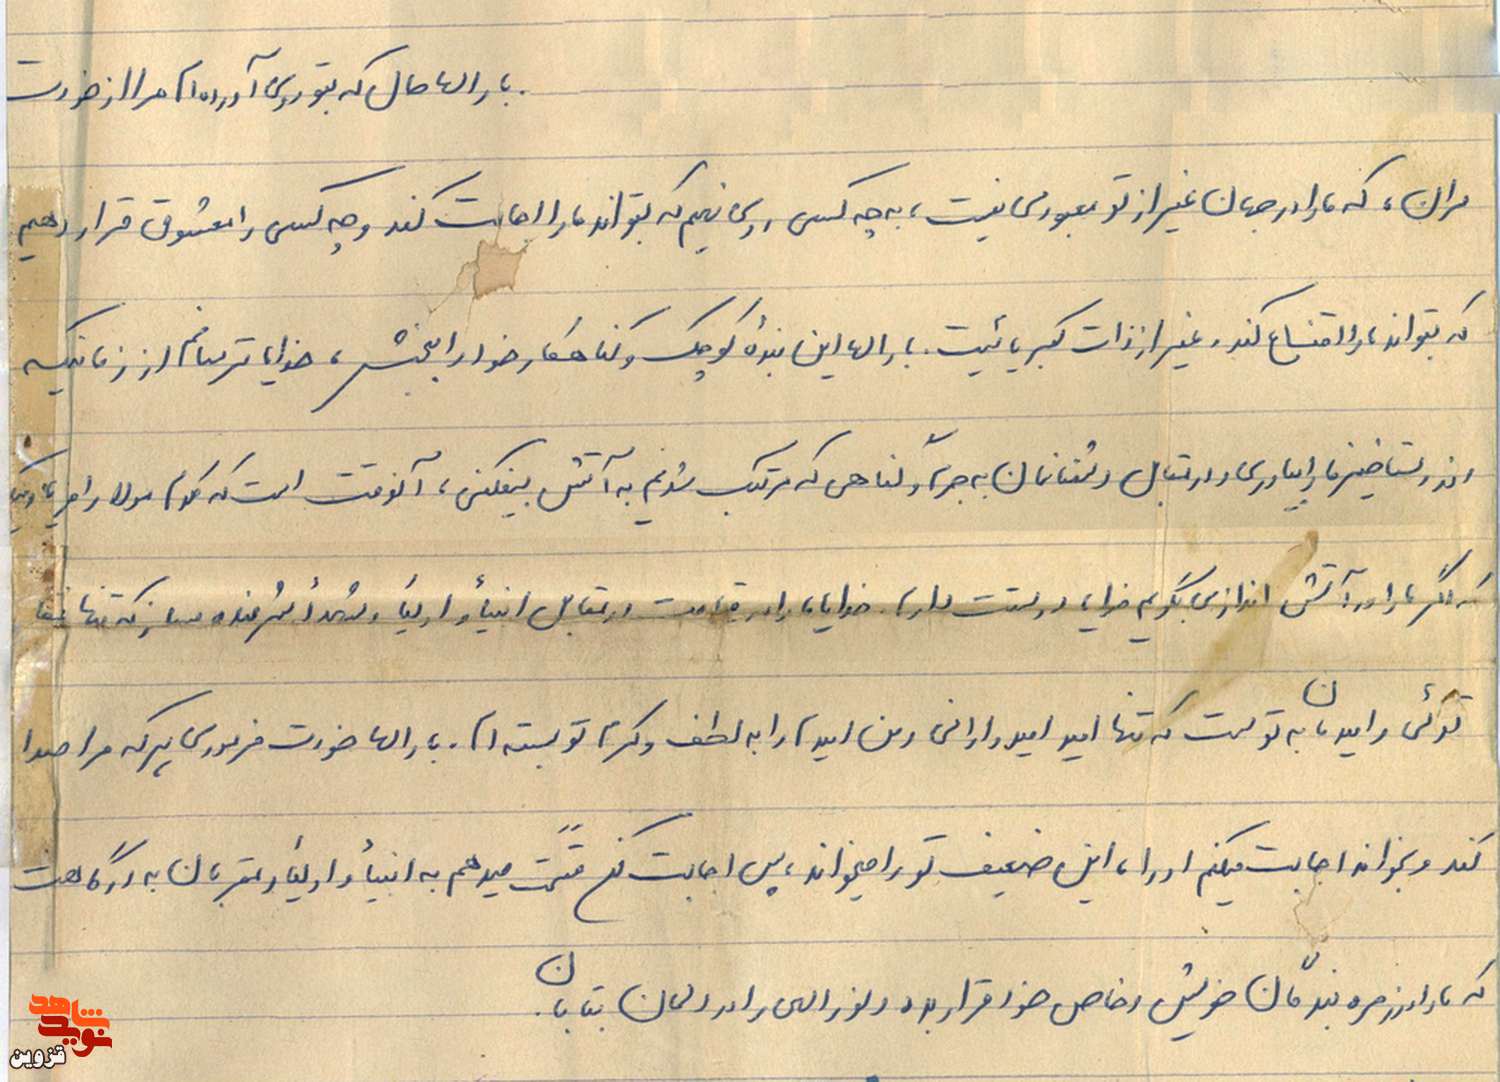 بارالها حال که بتو روی آورده‌ام مرا از خودت
مران، که ما را در جهان غیر از تو معبودی نیست، به چه کسی روی نهیم که بتواند ما را اجابت کند و چه کسی را معشوق قرار دهیم
که بتواند ما را اقناع کند. غیر از ذات کبریائیت. بارالها این بندهٔ کوچک و گناهکار خود را ببخش، خدایا ترسانم از زمانیکه
در رستاخیز ما را بیاوری و در مقابل دشمنانمان به جرم و گناهی که مرتکب شدیم به آتش بیفکنی، آنوقت است که کلام مولا را
که اگر ما را در آتش اندازی بگویم خدایا دوستت دارم. خدایا ما را در قیامت در مقابل انبیأ و اولیأ و شهدأ شرمنده مساز که تنها
توئی و امیدمان به توست که تنها امید امیدوارانی و من امیدم را به لطف و کرم تو بسته‌ام. بارالها خودت فرمودی هرکه مرا صدا
کند و بخواند اجابت میکنم او را، این ضعیف تو را میخواند، پس اجابت کن قسمت میدهم به انبیأ و اولیأ و مقربان به درگاهت
که ما را در زمره بندگان خویش و خاص خود قرار بده و نور الهی را در دلمان بتابان.
شاهد
نوید
قزوین